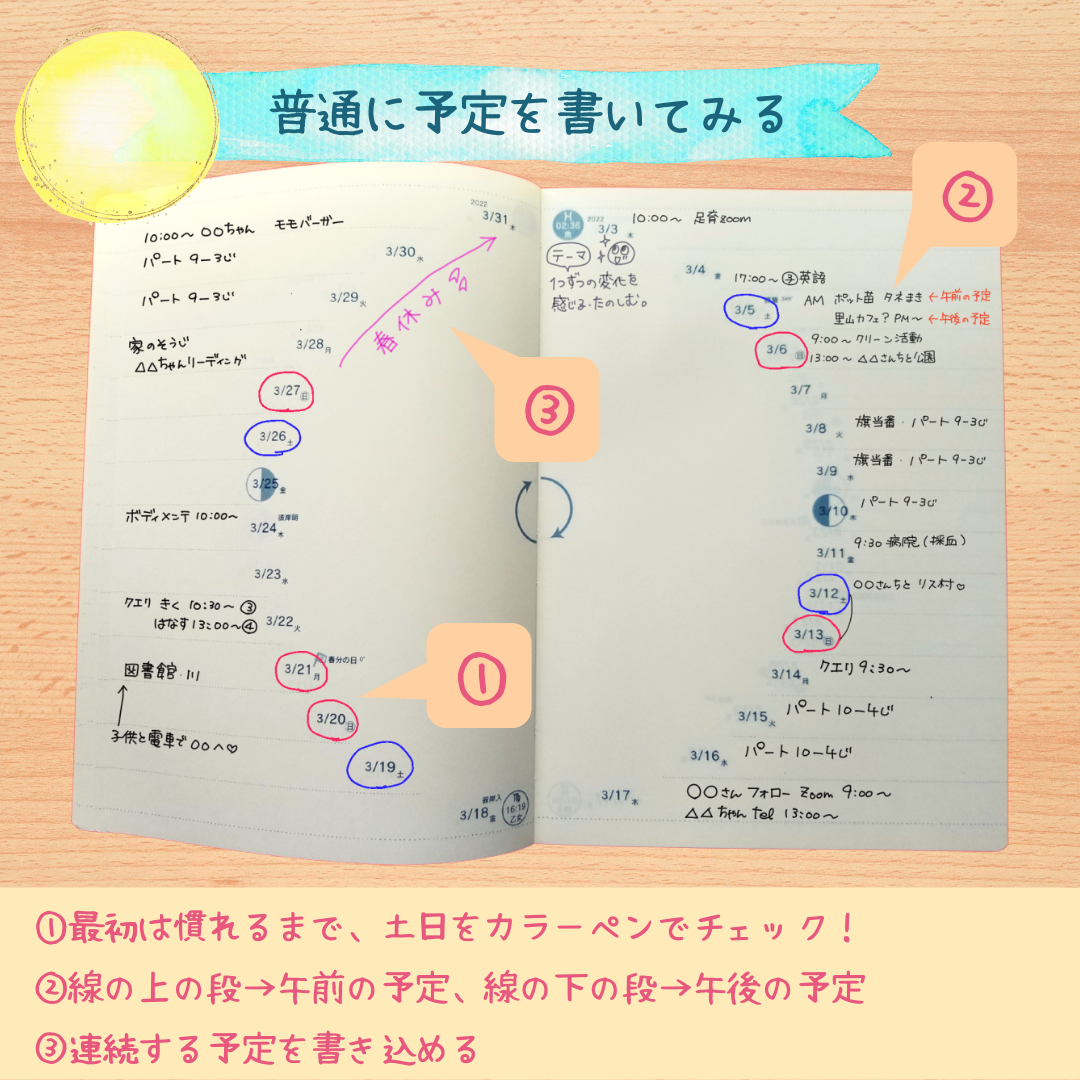 普通に予定を書いてみる
②
2022
3/31 木
10:00〜 〇〇ちゃん モモバーガー
3/30 水
パート 9-3じ
3/29 火
パート 9-3じ
春休み
3/28 月
家のそうじ
△△ちゃんリーディング
3/27 日
③
3/26 土
3/25 金
3/24 木
彼岸明
ボディメンテ 10:00〜
3/23 水
3/22 火
クエリ きく 10:30〜 ③
はなす 13:00〜④
3/21 月
春分の日
図書館・川
①
3/20 日
子供と電車で〇〇へ♡
3/19 土
彼岸入
3/18 金
16:19
乙女
02:36
魚
2022
3/3 木
10:00〜 足育zoom
テーマ
1つずつの変化を
感じる・たのしむ。
3/4 金
17:00〜③英語
3/5 土
AM ポット苗 タネまき ←午前の予定
里山カフェ? PM〜 ←午後の予定
3/6 日
9:00〜 クリーン活動
13:00〜 △△さんちと公園
3/7 月
3/8 火
旗当番・パート 9-3じ
3/9 水
旗当番・パート 9-3じ
3/10 木
パート 9-3じ
3/11 金
9:30 病院(採血)
3/12 土
〇〇さんちと リス村♡
3/13 日
3/14 月
クエリ 9:30〜
3/15 火
パート 10-4じ
3/16 水
パート 10-4じ
3/17 木
〇〇さん フォロー Zoom 9:00〜
△△ちゃん tel 13:00〜
①最初は慣れるまで、土日をカラーペンでチェック！
②線の上の段→午前の予定、線の下の段→午後の予定
③連続する予定を書き込める